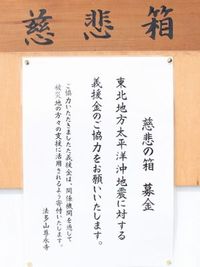 慈悲箱
慈悲の箱　募金
東北地方太平洋沖地震に対する
義援金のご協力をお願いいたします。
ご協力いただきました義援金は、関係機関を通して、
被災地の方々の支援に活用されるよう寄付いたします。
法多山尊永寺